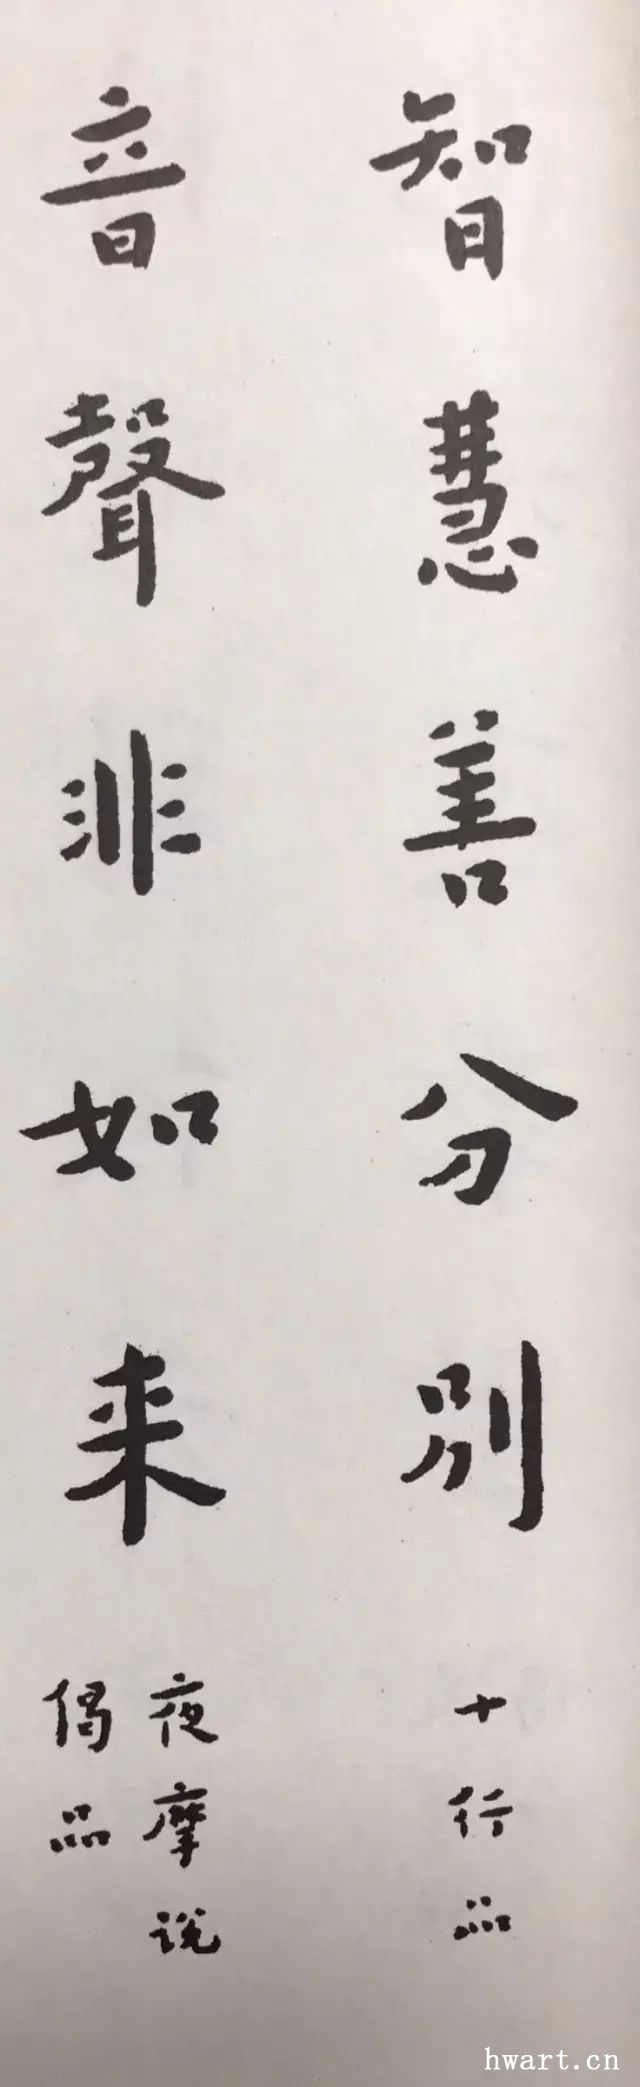 智慧善分別
十行品
音聲非如来
夜摩説
偈品
hwart.cn